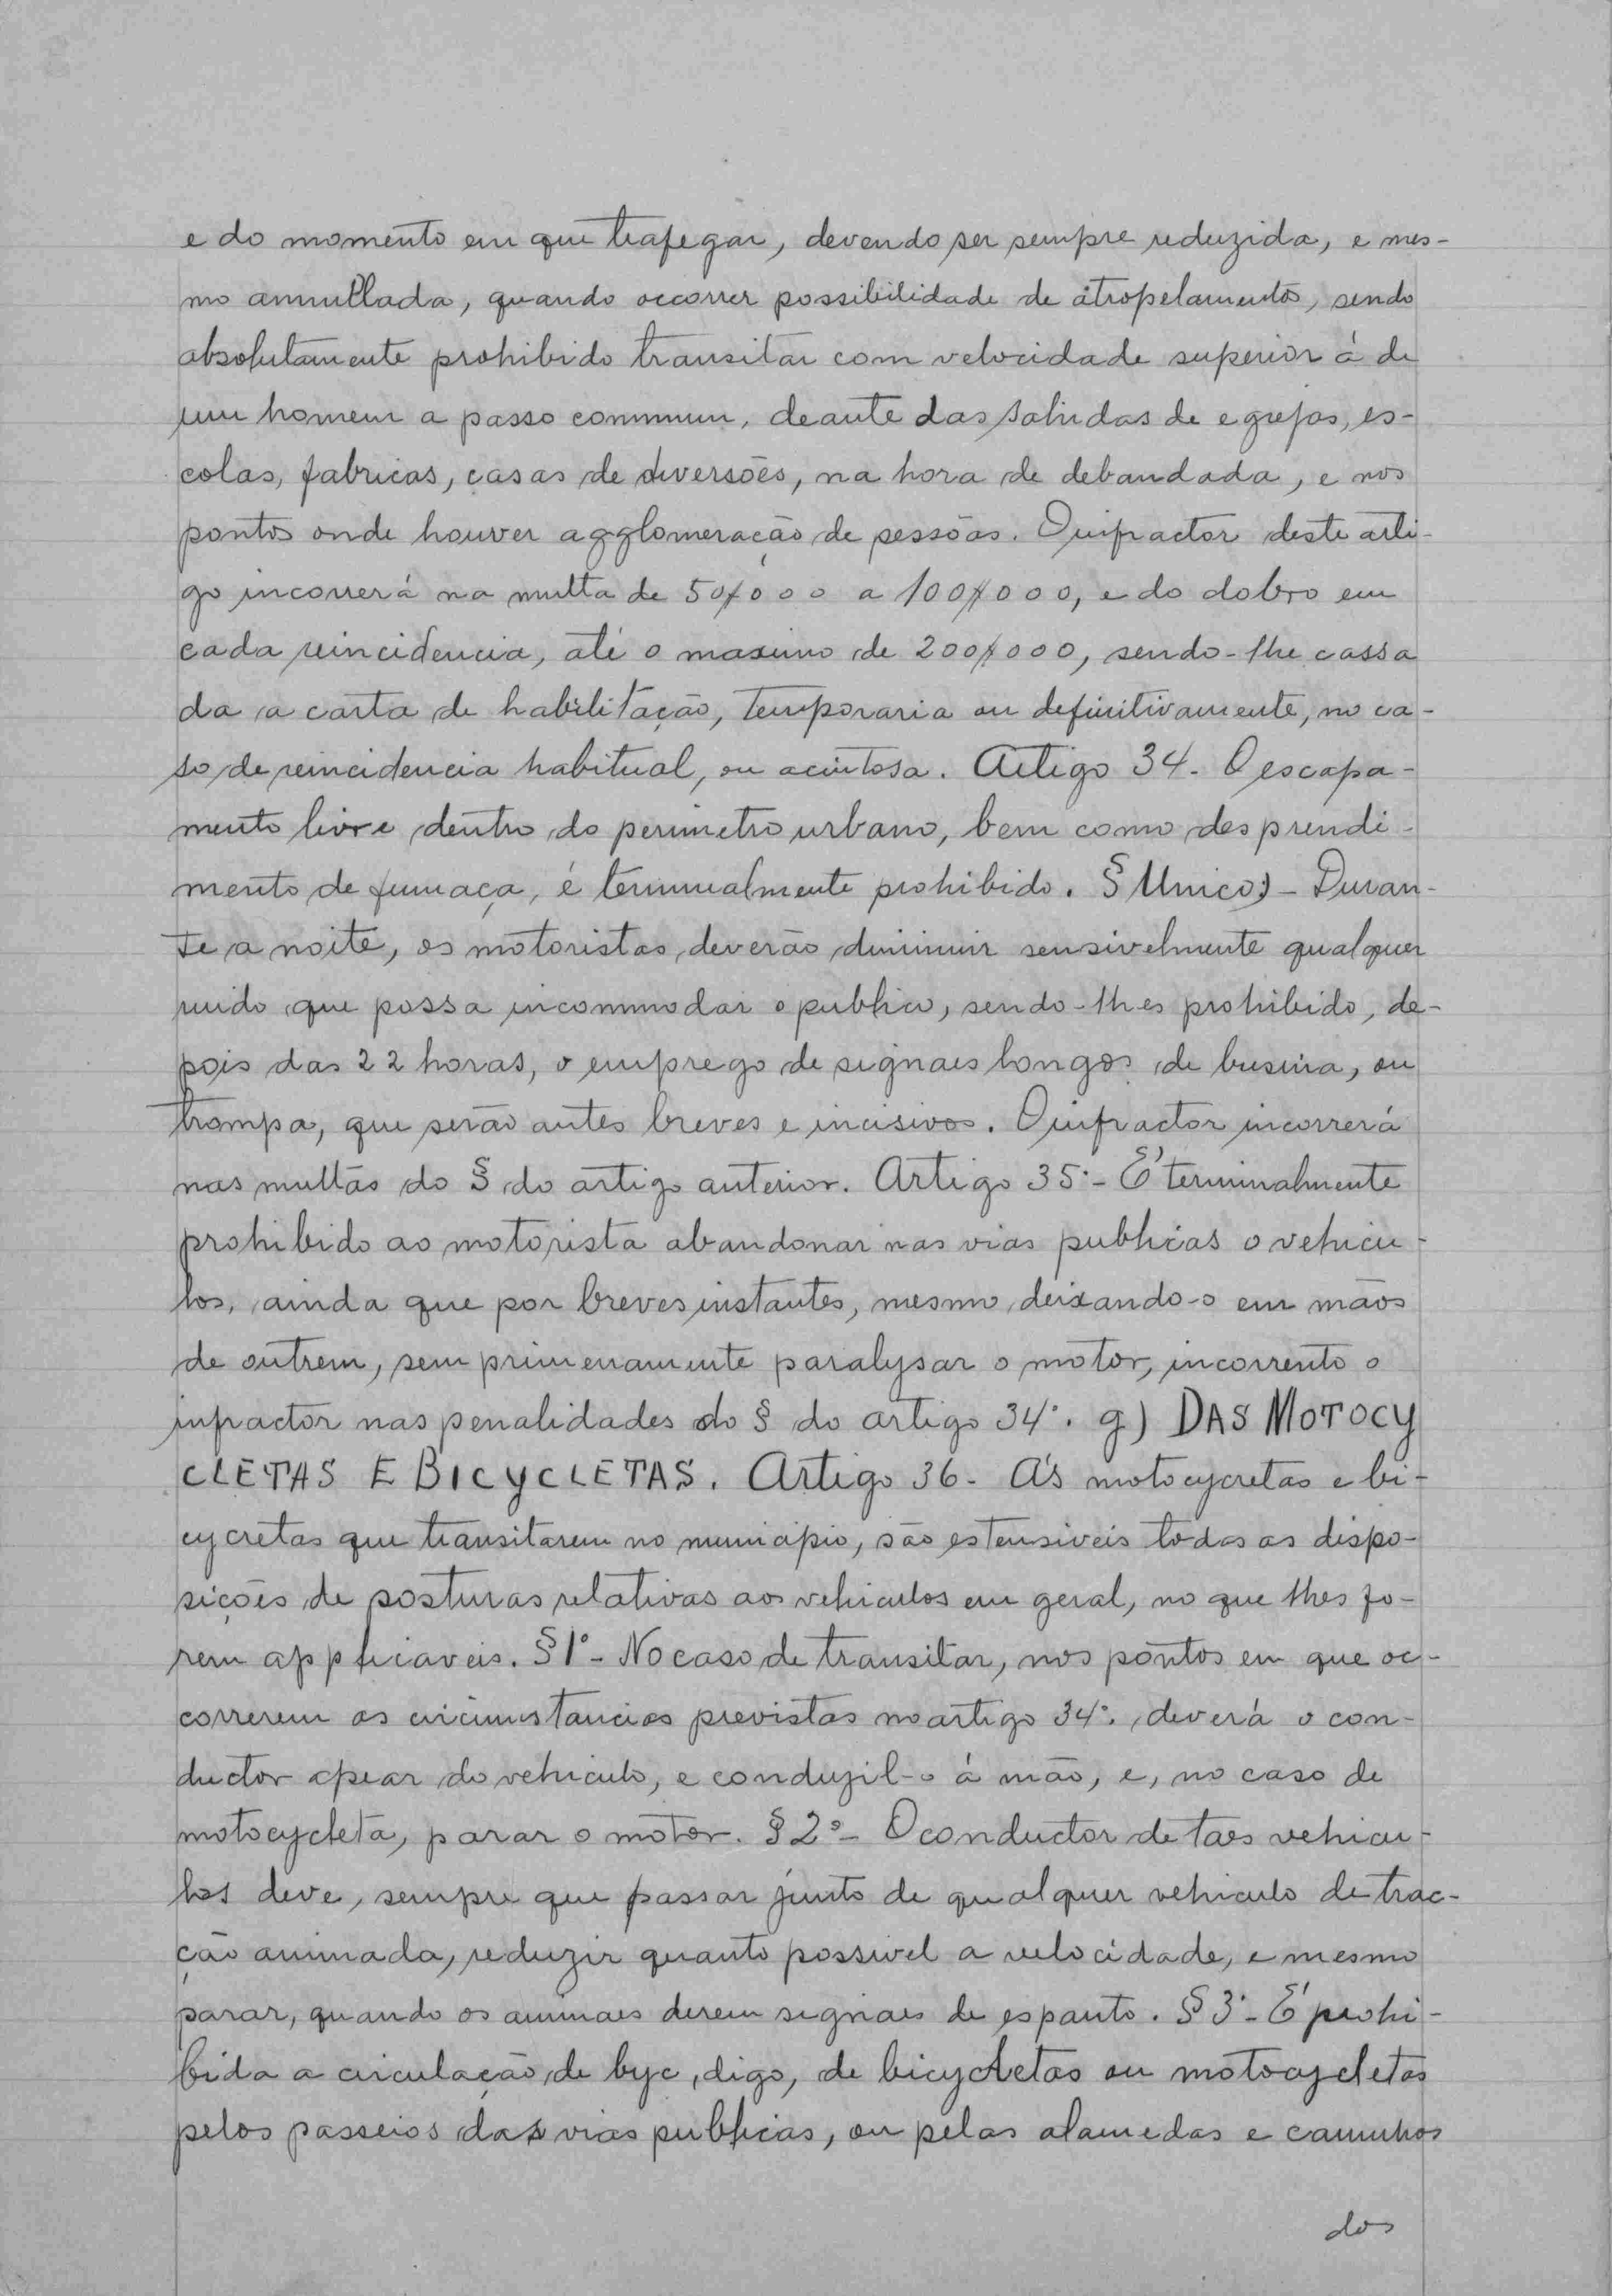 e do momento em que trafegar, devendo ser sempre reduzida, e mes-
mo annullada, quando occorrer possibilidade de atropelamentos, sendo
absolutamente prohibido transitar com velocidade superior á de
um homem a passo commum, deante das sahidas de egrejas, es-
colas, fabricas, casas de diversões, na hora de debandada, e nos
pontos onde houver agglomeração de pessôas. O infractor deste arti-
go incorrerá na multa de 50$000 a 100$000, e do dobro em
cada reincidencia, até o maximo de 200$000, sendo-lhe cassa
da a carta de habilitação, temporaria ou definitivamente, no ca-
so de reincidencia habitual, ou acintosa. Artigo 34- O escapa-
mento livre dentro do perimetro urbano, bem como desprendi-
mento de fumaça, é terminalmente prohibido. § Unico)- Duran-
te a noite, os motoristas deverão diminuir sensivelmente qualquer
ruido que possa incommodar o publico, sendo-lhes prohibido, de-
pois das 22 horas, o emprego de signaes longos de busina, ou
trompa, que serão antes breves e incisivos. O infractor incorrerá
nas multas do § do artigo anterior. Artigo 35º- É terminalmente
prohibido ao motorista abandonar nas vias publicas o vehicu-
los, ainda que por breves instantes, mesmo deixando-o em mãos
de outrem, sem primeiramente paralysar o motor, incorrento o
infractor nas penalidades do § do artigo 34º. g) DAS MOTOCY
CLETAS E BICYCLETAS. Artigo 36- Ás motocycretas e bi-
cycretas que transitarem no municipio, são estensiveis todas as dispo-
sições de posturas relativas aos vehiculos em geral, no que lhes fo-
rem applicaveis. § 1º- No caso de transitar, nos pontos em que oc-
correrem as circumstancias previstas no artigo 34º, deverá o con-
ductor apear do vehiculo, e conduzil-o á mão, e, no caso de
motocycleta, parar o motor. § 2º- O conductor de taes vehicu-
los deve, sempre que passar junto de qualquer vehiculo de trac-
ção animada, reduzir quanto possivel a velocidade, e mesmo
parar, quando os animaes derem signaes de espanto. § 3º- É prohi-
bida a circulação de byc, digo, de bicycletas ou motocycletas
pelos passeios das vias publicas, ou pelas alamedas e caminhos
dos